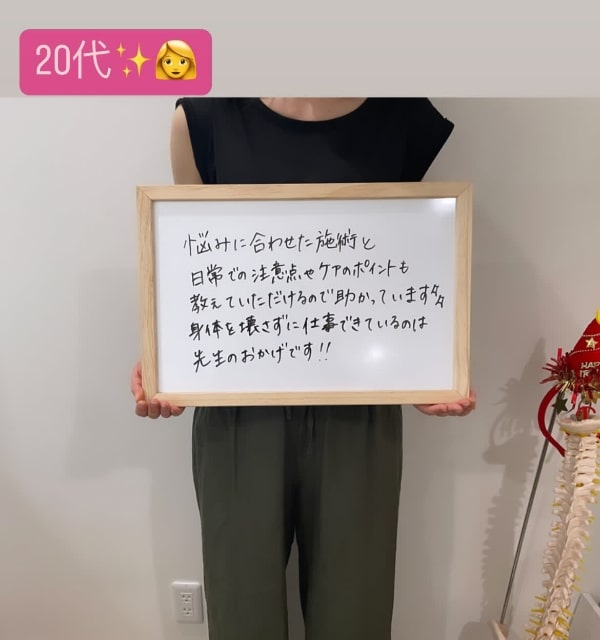 20代✨👩
悩みに合わせた施術と
日常での注意点やケアのポイントも
教えていただけるので助かっています✨
身体を壊さずに仕事できているのは
先生のおかげです!!
HAPPY